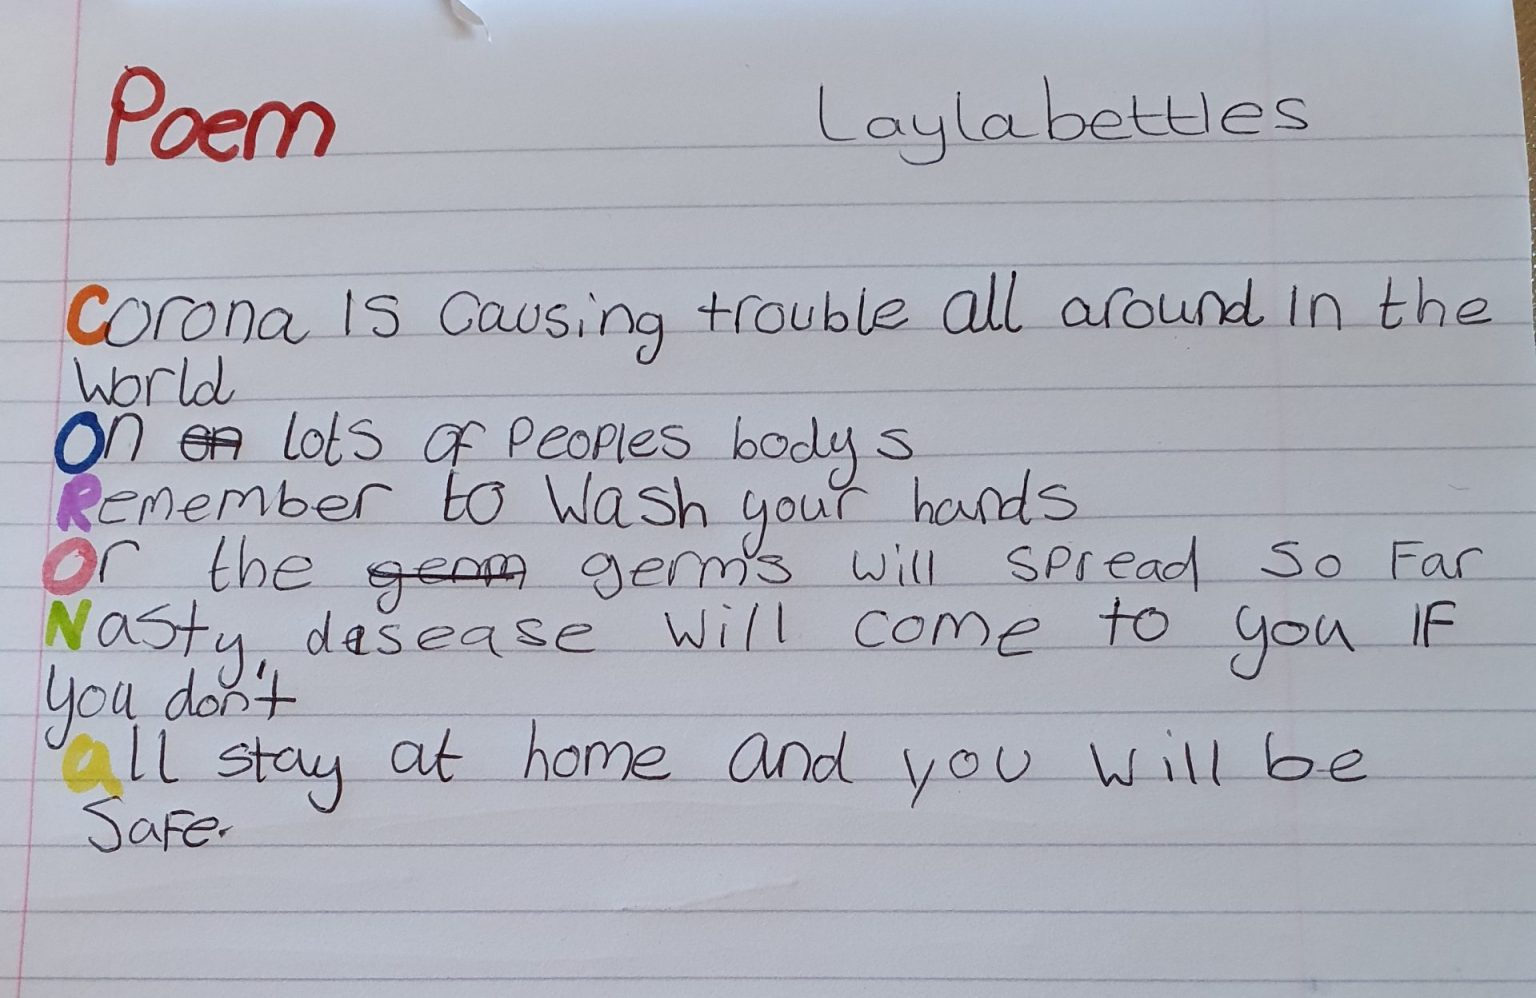 Poem Layla bettles
Corona Is Causing trouble all around In the
World
On en lots of Peoples bodys
Remember to Wash your hands
Or the germ germs will spread So Far
Nasty, desease will come to you IF
you don't
all stay at home and you will be
Safe.